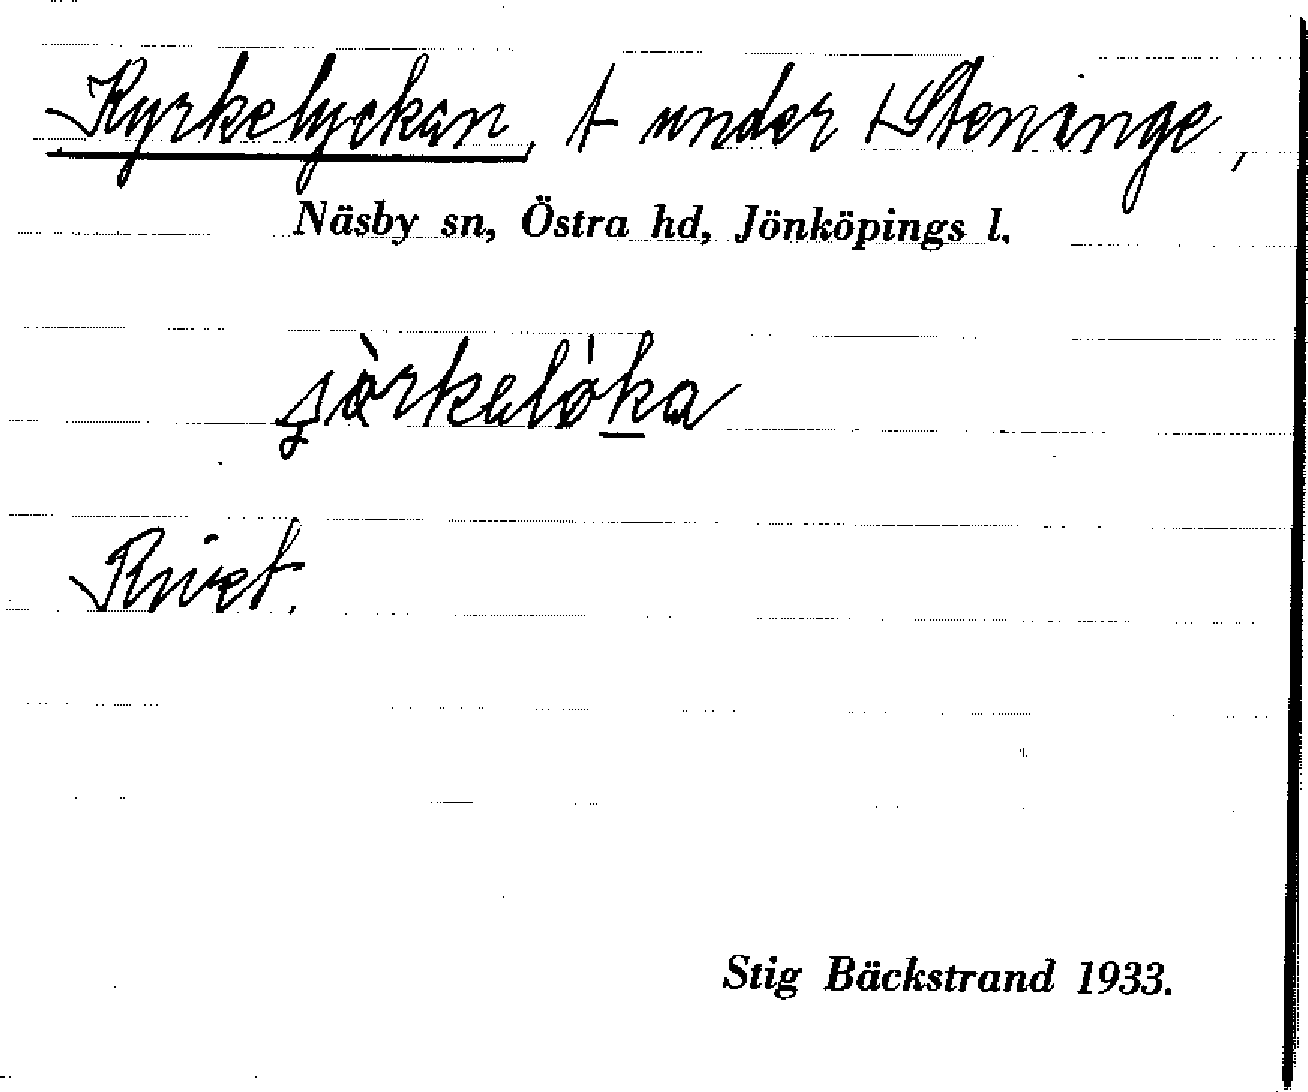 Kyrkelyckan, t under Steninge,
Näsby sn, Östra hd, Jönköpings l.
Rivet.
Stig Bäckstrand 1933.